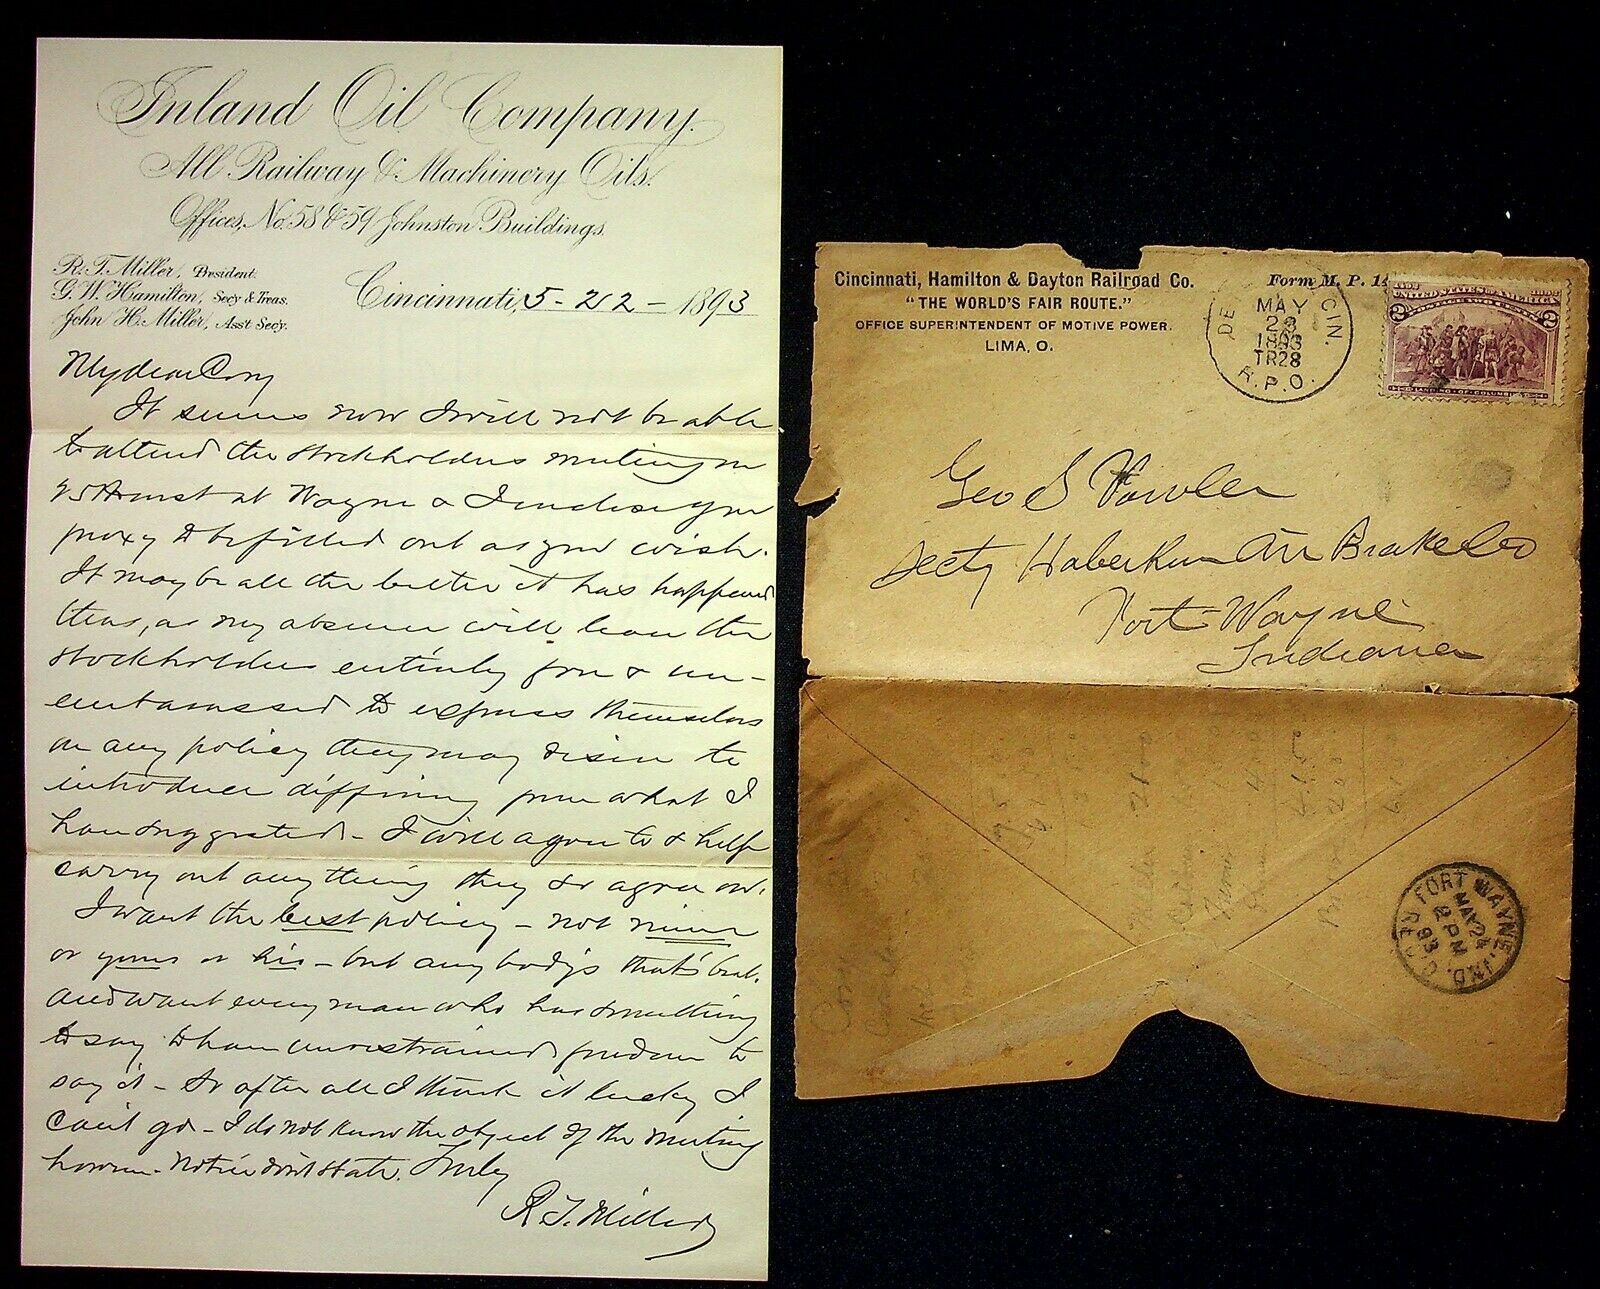 Inland Oil Company.
All Railway & Machinery Oils.
Offices, No. 58 & 59 Johnston Buildings.
R. T. Miller, President.
G. W. Hamilton, Sec'y & Treas.
John H. Miller, Ass't Sec'y.
Cincinnati, 5-22-1893
My dear Cory
It seems now I will not be able
to attend the stockholders meeting on
25th inst at Wayne & I enclose you
proxy to be filled out as you wish.
It may be all the better it has happened
thus, as my absence will leave the
stockholders entirely free & un-
embarrassed to express themselves
on any policy they may desire to
introduce differing from what I
have suggested - I will agree to & help
carry out anything they do agree on.
I want the best policy - not mine
or yours or his - but anybody's that's best.
and want every man who has something
to say to have unrestrained freedom to
say it - So after all I think it lucky I
can't go - I do not know the object of the meeting
however - Notice don't state. Truly
R. T. Miller
Cincinnati, Hamilton & Dayton Railroad Co.
Form M. P. 1
"THE WORLD'S FAIR ROUTE."
OFFICE SUPERINTENDENT OF MOTIVE POWER.
LIMA, O.
DE CIN.
MAY
23
1893
TR28
R.P.O.
1492 1892
UNITED STATES OF AMERICA
2 2
LANDING OF COLUMBUS
Geo S Fowler
Secty Haberkorn Air Brake Co
Fort Wayne
Indiana
Cory
2100
4150
FORT WAYNE, IND.
MAY 24
2 PM
93
REC'D.